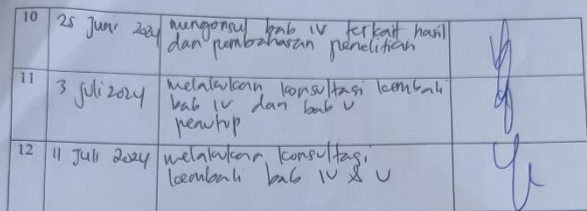 10 25 Juni 2024 mengonsul bab IV terkait hasil
dan pembahasan penelitian
11 3 Juli 2024 melakukan konsultasi kembali
bab IV dan bab V
penutup
12 11 Juli 2024 melakukan konsultasi
kembali bab IV & V